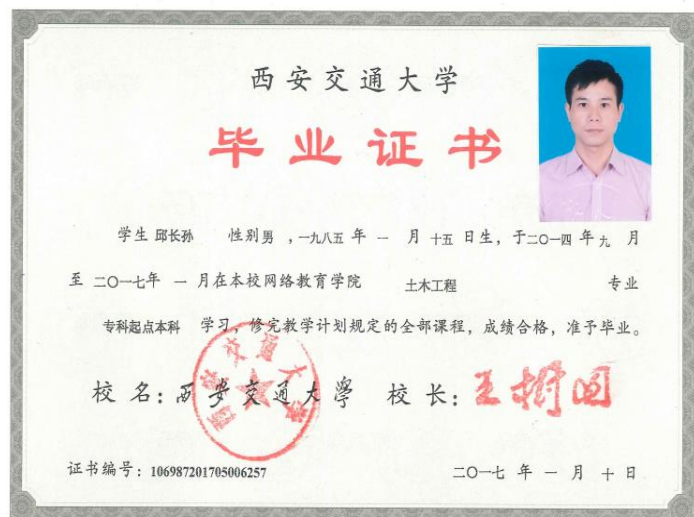 西安交通大学
毕业证书
学生 邱长孙 性别男 ，一九八五 年 一 月 十五 日生，于二〇一四 年 九 月
至 二〇一七年 一 月在本校网络教育学院 土木工程 专业
专科起点本科 学习，修完教学计划规定的全部课程，成绩合格，准予毕业。
校 名：西安交通大學 校 长：王树国
证书编号：106987201705006257 二〇一七 年 一 月 十 日